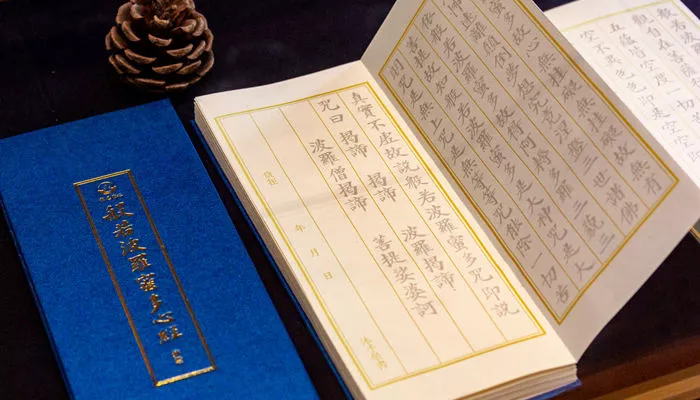 觀自在
五蘊皆空度一
空不異色色即是空
蜜多故心無罣礙無罣礙故無有
離顛倒夢想究竟涅槃三世諸佛
般若波羅蜜多故得阿耨多羅三藐三
菩提故知般若波羅蜜多是大神咒是大
明咒是無上咒是無等等咒能除一切苦
真實不虛故說般若波羅蜜多咒即說
咒曰 揭諦 揭諦 波羅揭諦
波羅僧揭諦 菩提娑婆訶
年 月 日
般若波羅蜜多心經